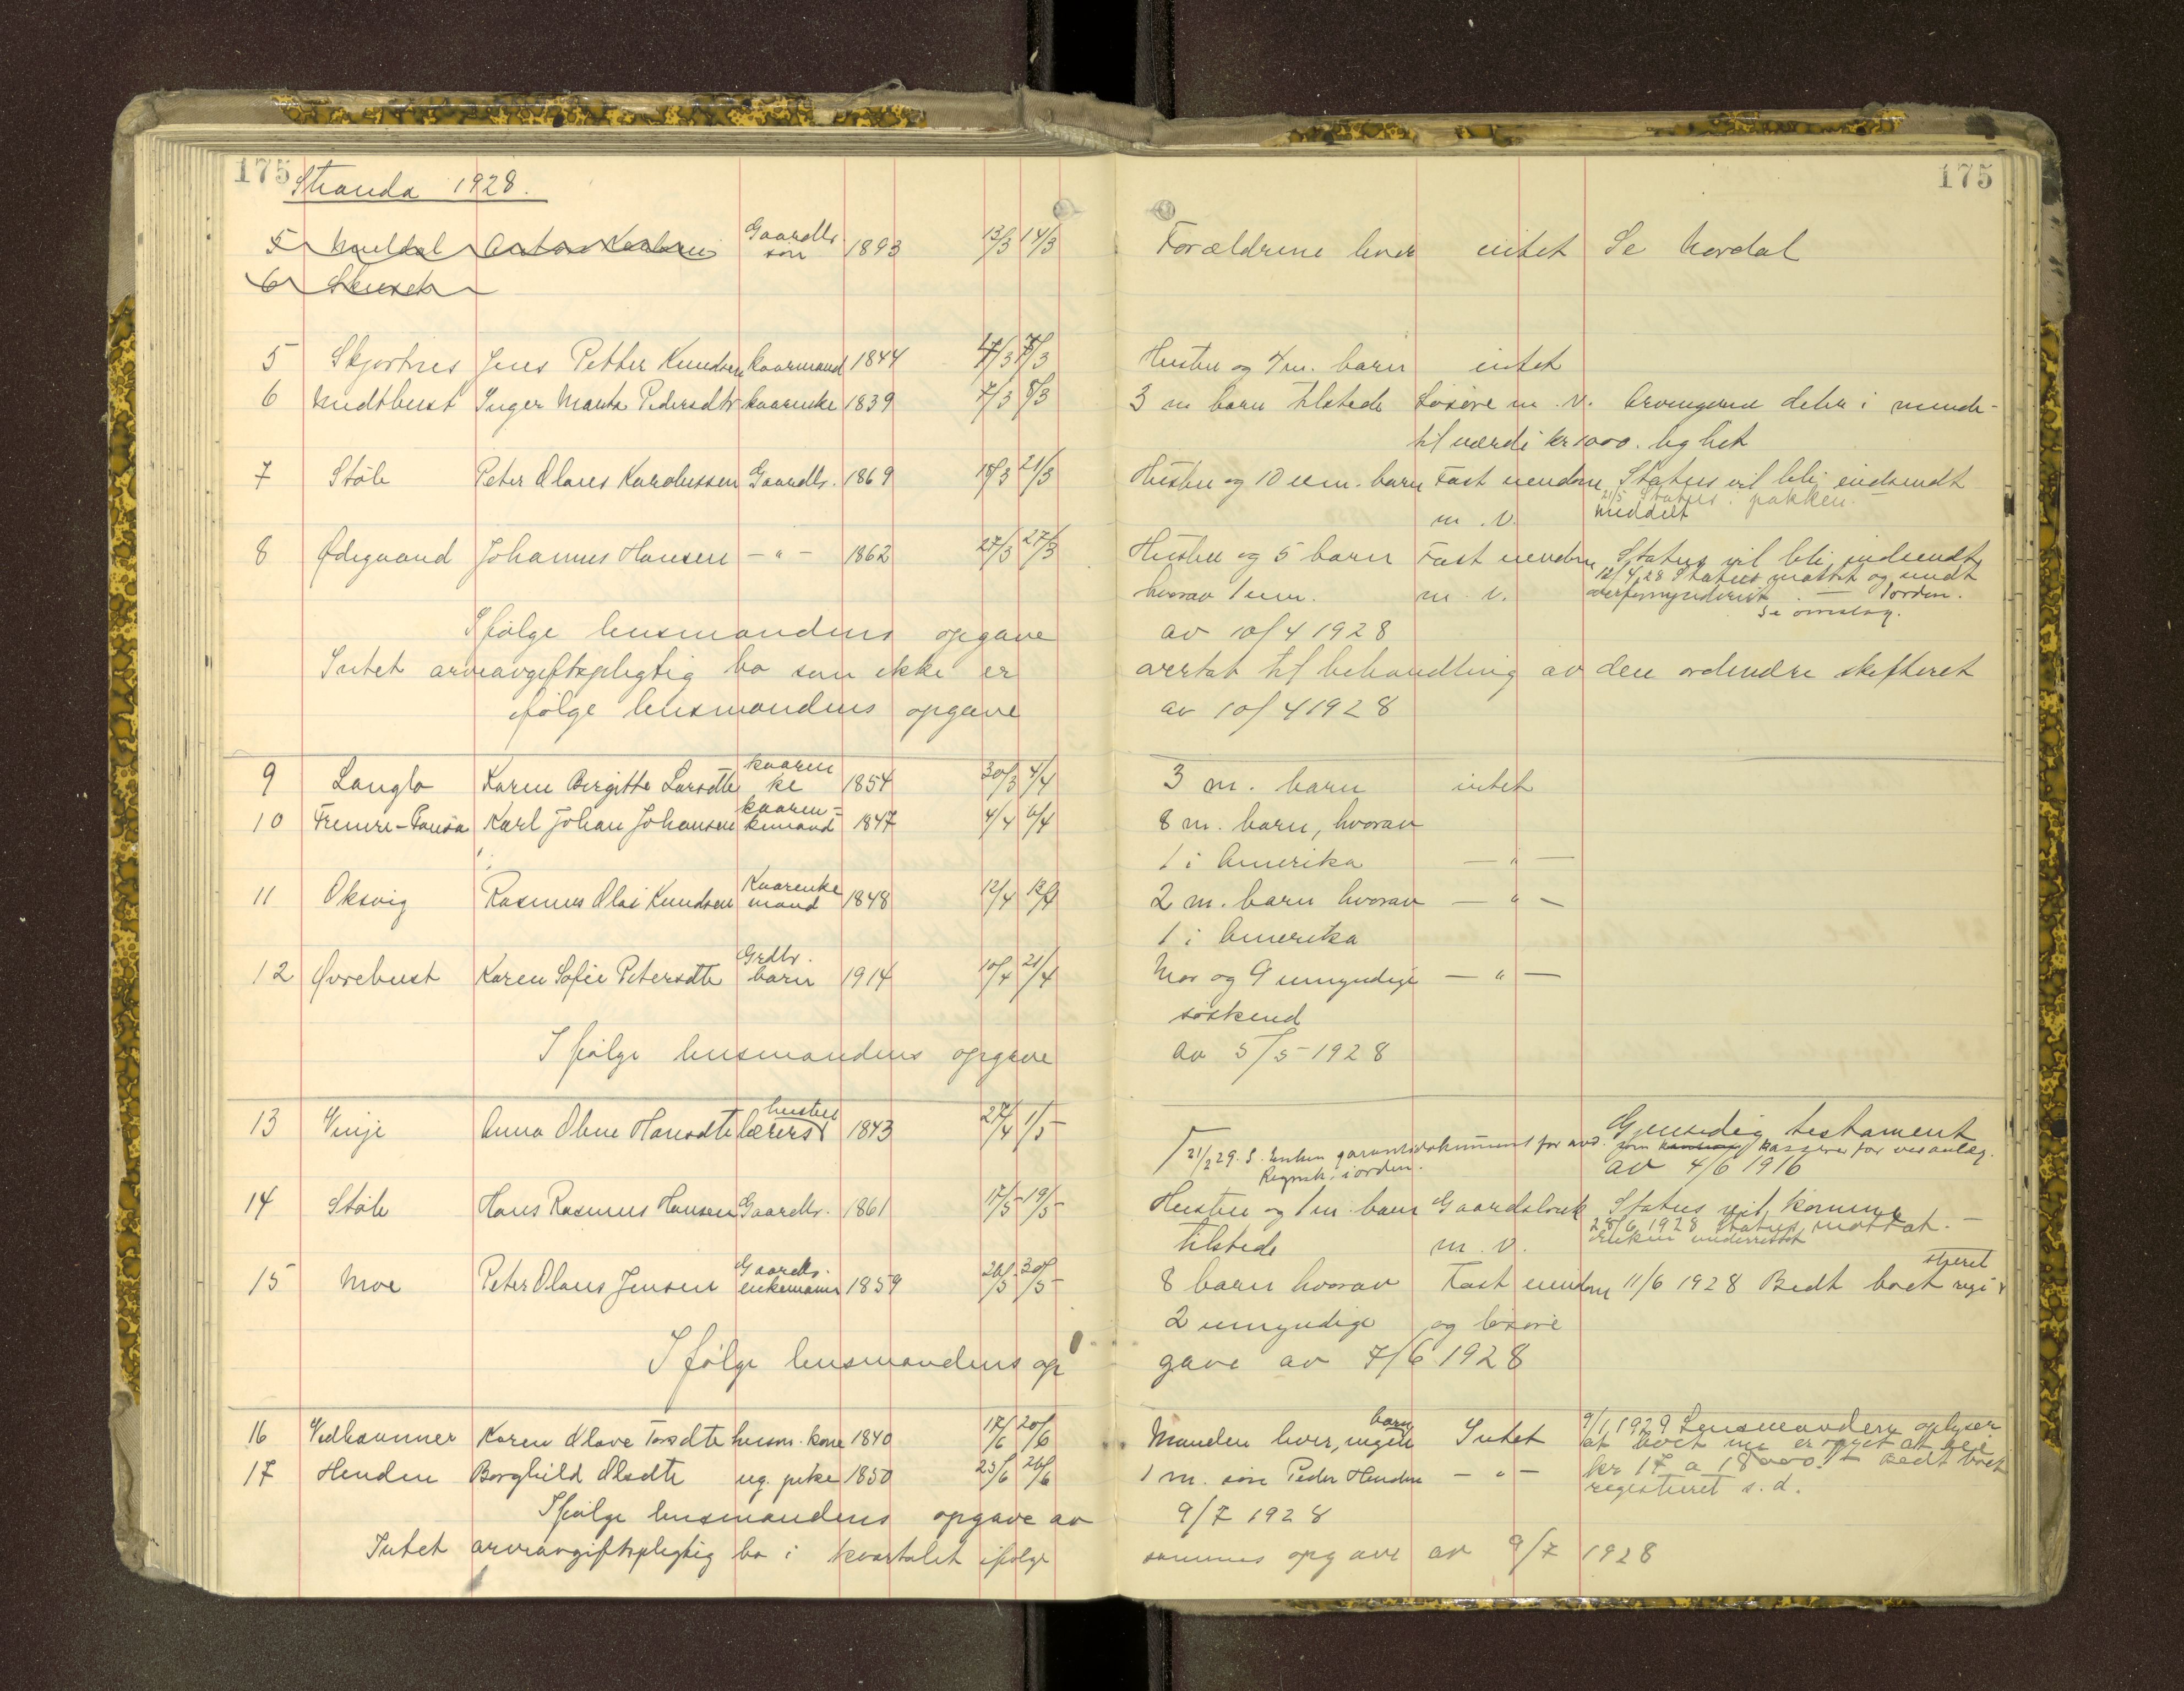 175
Stranda 1928.
175
5 Muldal Anton Gaardbr. søn 1893 13/3 14/3 Forældrene lever intet Se Nordal
6
5 Skjortnes Jens Petter Knudsen kaarmand 1844 7/3 Hustru og 4 m. barn intet
6 Midtbust Inger Marta Pedersdtr kaarenke 1839 7/3 8/3 3 m barn tilstede Løsøre m. v. Arvingerne deler i minde-
til værdi kr 1000. lighet
7 Støle Peter Olaus Karolussen Gaardbr. 1869 18/3 21/3 Hustru og 10 um. barn Fast eiendom Status vil bli indsendt
m. v. 21/5 Status i pakken.
meddelt
8 Ødegaard Johannes Hansen — " — 1862 27/3 27/3 Hustru og 5 barn Fast eiendom Status vil bli indsendt
hvorav 1 um. m. v. 12/4 28 Status mottat og sendt
overformynderiet. — I orden.
Se omslag.
Ifølge lensmandens opgave av 10/4 1928
Intet arveavgiftspligtig bo som ikke er overtat til behandling av den ordinære skifteret
ifølge lensmandens opgave av 10/4 1928
9 Langlo Karen Birgitte Larsdtr kaarenke 1854 30/3 4/4 3 m. barn intet
10 Fremre-Fausa Karl Johan Johansen kaaren-kemand 1847 4/4 6/4 8 m. barn, hvorav
1 i Amerika — " —
11 Oksvig Rasmus Olai Knudsen Kaarenkemand 1848 12/4 2 m. barn hvorav — " —
1 i Amerika
12 Øvrebust Karen Sofie Petersdtr Grdbr. barn 1914 10/4 21/4 Mor og 9 umyndige — " —
søskend
I følge lensmandens opgave av 5/5 1928
13 Vinje Anna Oline Hansdtr lærers hustru 1843 27/4 1/5 Gjensidig testament
av 4/6 1916
21/2 29. S. Enken garantidokument for avd. som kasserer for
Regnsk. i orden.
14 Støle Hans Rasmus Hansen Gaardbr. 1861 17/5 19/5 Hustru og 1 m. barn Gaardsbruk Status vil komme
tilstede m. v. 28/6 1928 Status mottat. —
Enken underrettet
15 Moe Peter Olaus Jensen Gaardbr. enkemann 1859 26/5 30/5 8 barn hvorav Fast eiendom 11/6 1928 Bedt boet regi-
steret
2 umyndige og løsøre
I følge lensmandens opgave av 7/6 1928
16 Vedhammer Karen Olave Torsdtr husm. kone 1840 17/6 20/6 Manden lever, ingen barn Intet 9/1 1929 Lensmanden oplyser
at boet nu er opgit at være
17 Henden Borghild Olsdtr ug. pike 1850 25/6 26/6 1 m. søn Peder Henden — " — kr 17 a 18000. Bedt boet
registreret s. d.
Ifølge lensmandens opgave av 9/7 1928
Intet arveavgiftspligtig bo i kvartalet ifølge sammes opgave av 9/7 1928